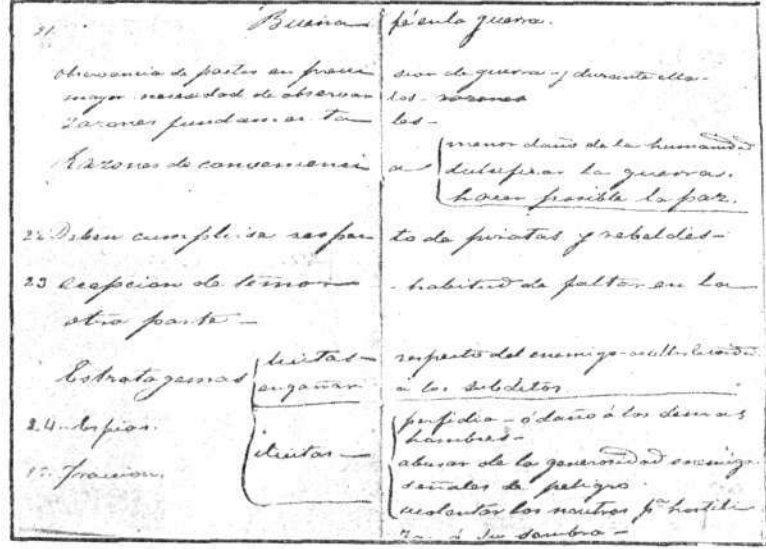 21. Buena fé en la guerra.
observancia de pactos en prevision de guerra - y durante ella -
mayor necesidad de observarlos - razones
razones fundamentales -
Razones de conveniencia
menor daño de la humanidad
dulcificar la guerra.
hacer posible la paz.
22 Deben cumplirse respecto de piratas y rebeldes -
23 ecepcion de temor - habitud de faltar en la
otra parte -
Estratagemas
licitas - respecto del enemigo
engañar á los subditos
24 - Espias.
ilicitas -
perfidia - ó daño á los demas
hombres -
abusar de la generosidad enemiga
señales de peligro
violentar los neutros pª hostili
á su sombra -